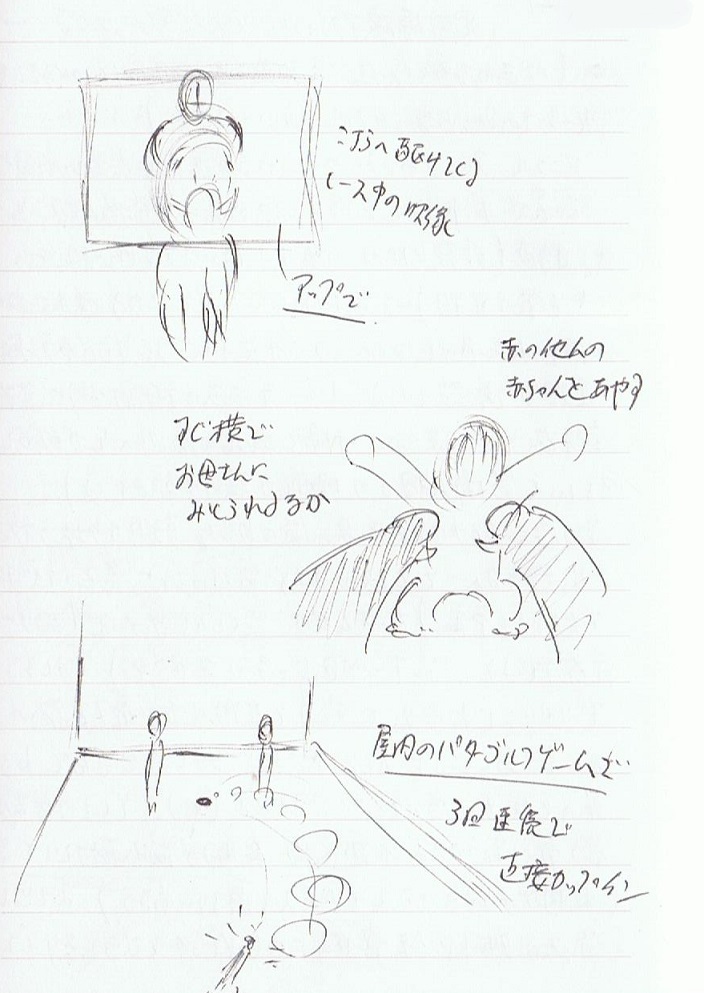 こちらへ駆けてく
レース中の映像
アップで
赤の他人の
赤ちゃんをあやす
すぐ横で
お母さんに
みとられるか
屋内のパターゴルフゲームで
3回連続で
直接カップイン